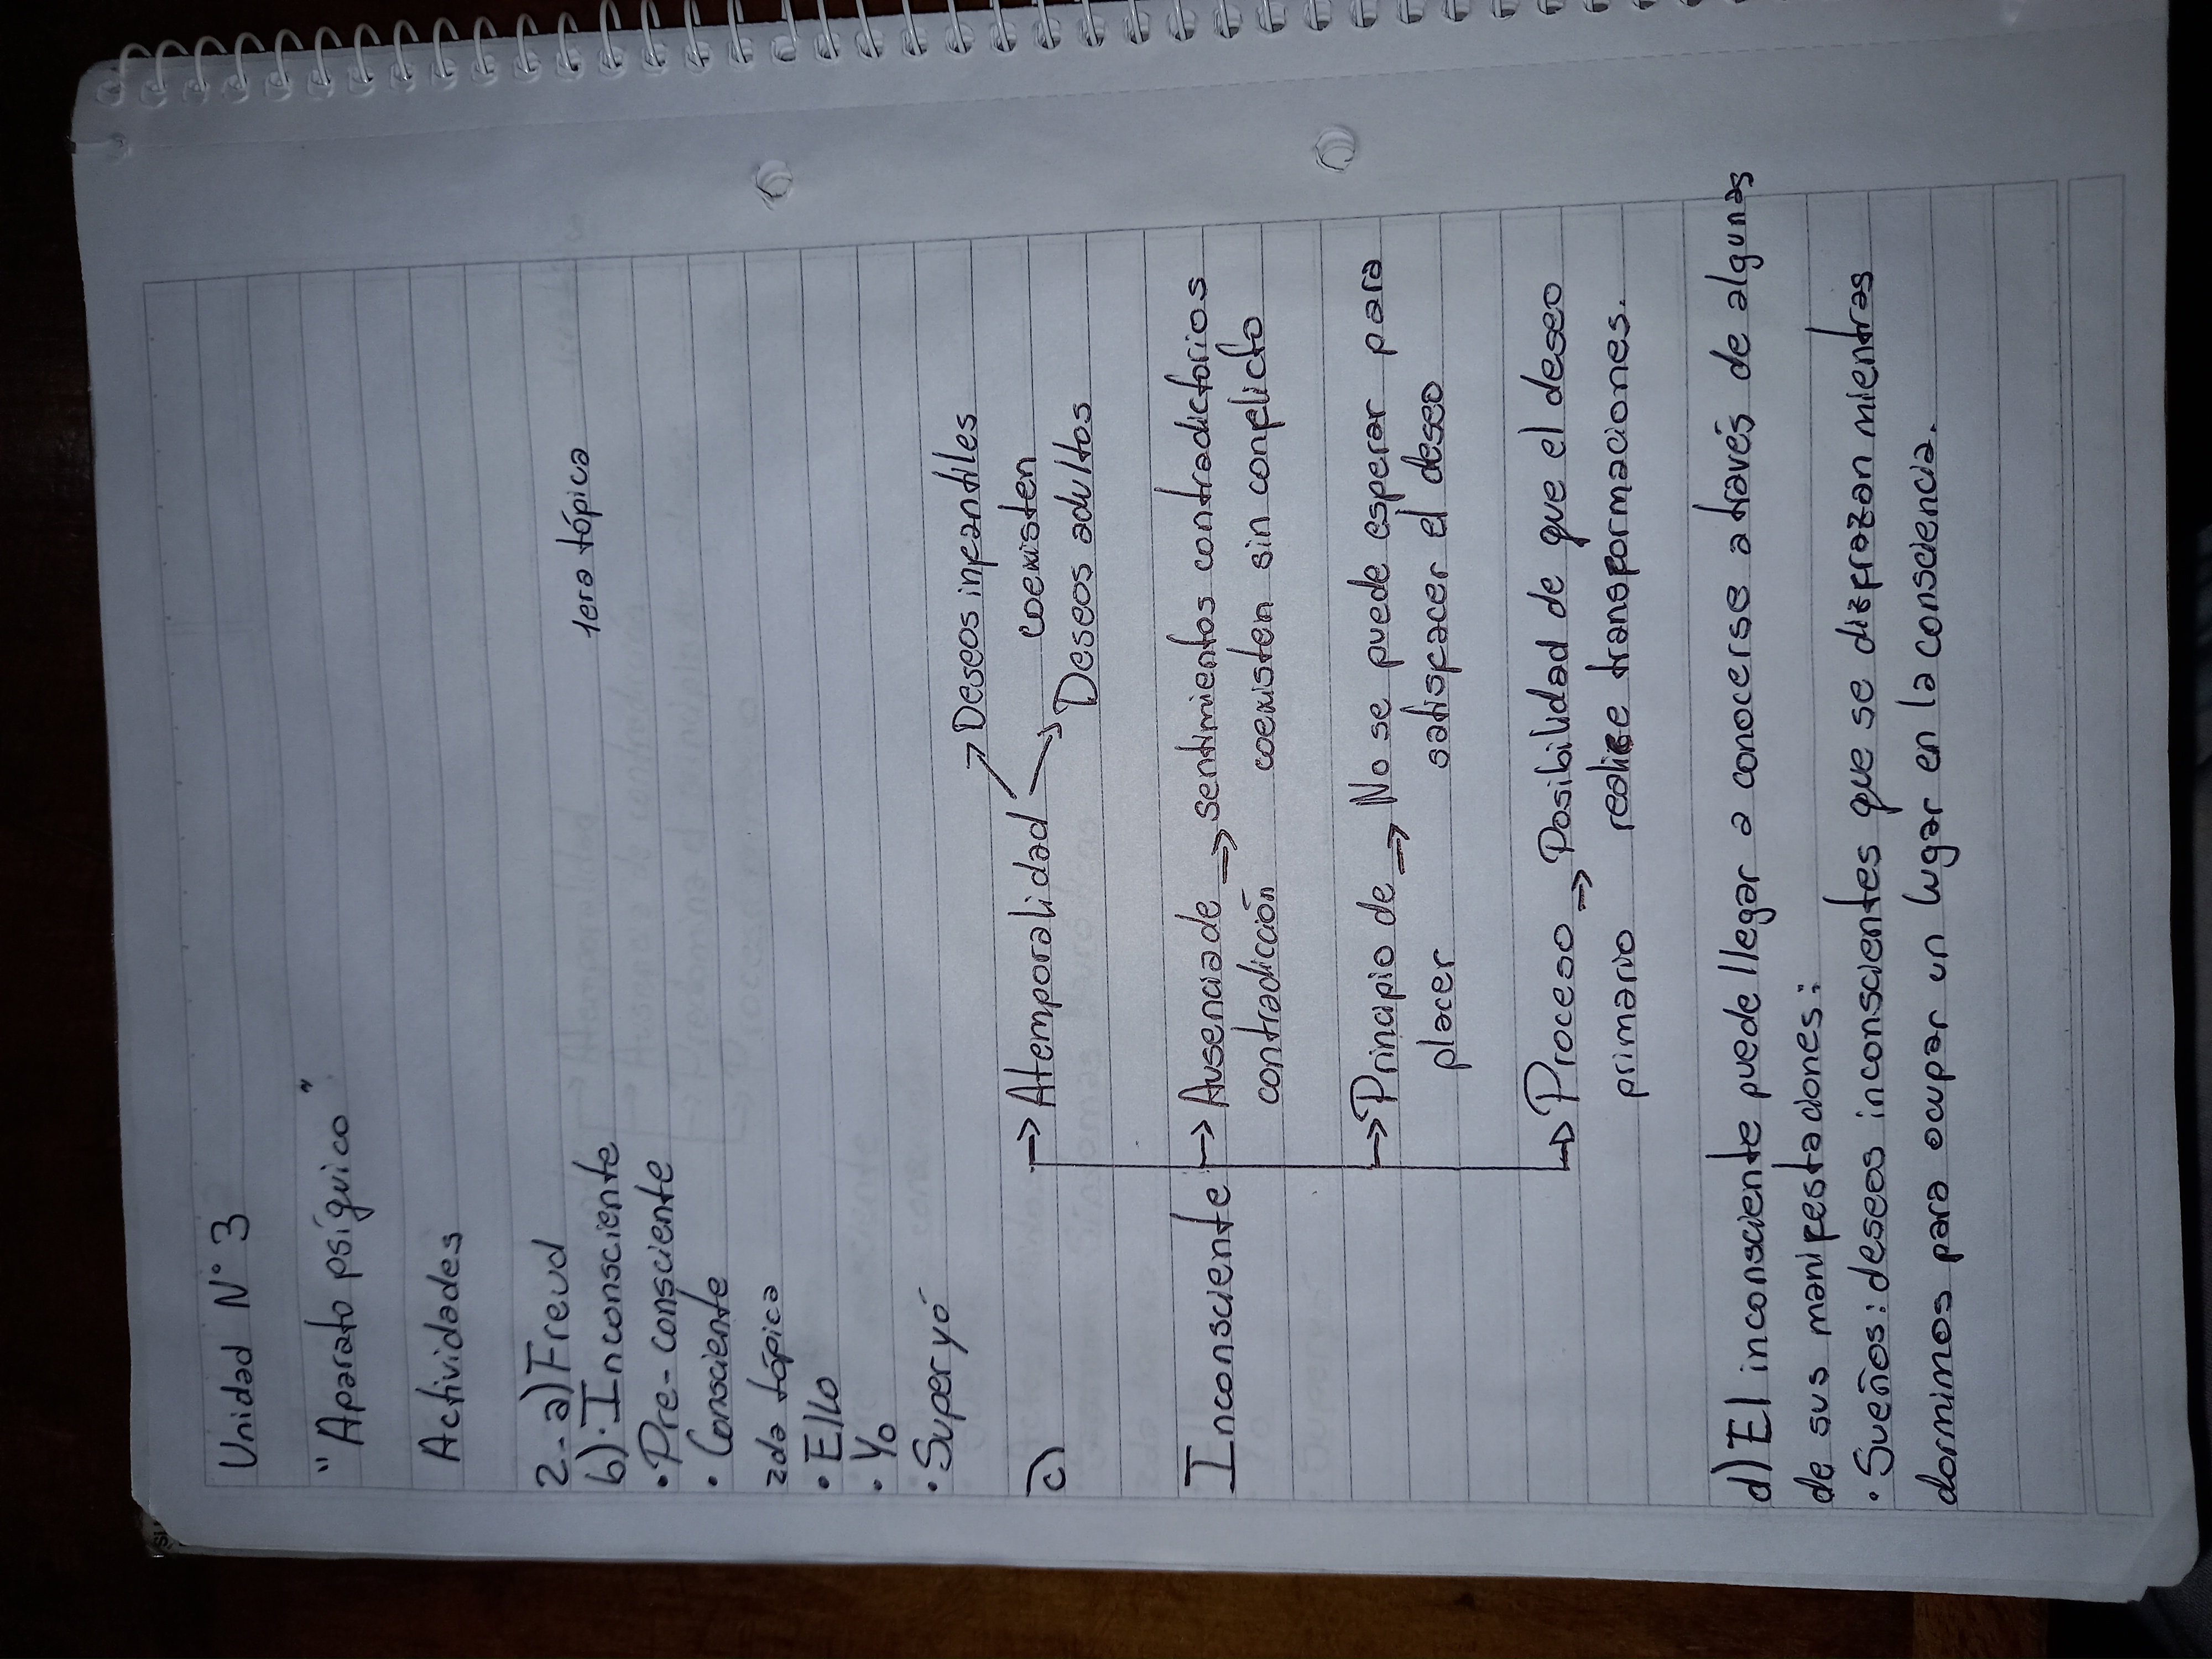 Unidad N° 3
"Aparato psíquico"
Actividades
2-a) Freud
b)· Inconsciente 1era tópica
· Pre-consciente
· Consciente
2da tópica
· Ello
· Yo
· Superyó
→ Deseos infantiles
coexisten
c) → Atemporalidad → Deseos adultos
Inconsciente → Ausencia de → sentimientos contradictorios
contradicción coexisten sin conflicto
→ Principio de → No se puede esperar para
placer satisfacer el deseo
→ Proceso → Posibilidad de que el deseo
primario realice transformaciones.
d) El inconsciente puede llegar a conocerse a través de algunas
de sus manifestaciones:
· Sueños: deseos inconscientes que se disfrazan mientras
dormimos para ocupar un lugar en la consciencia.